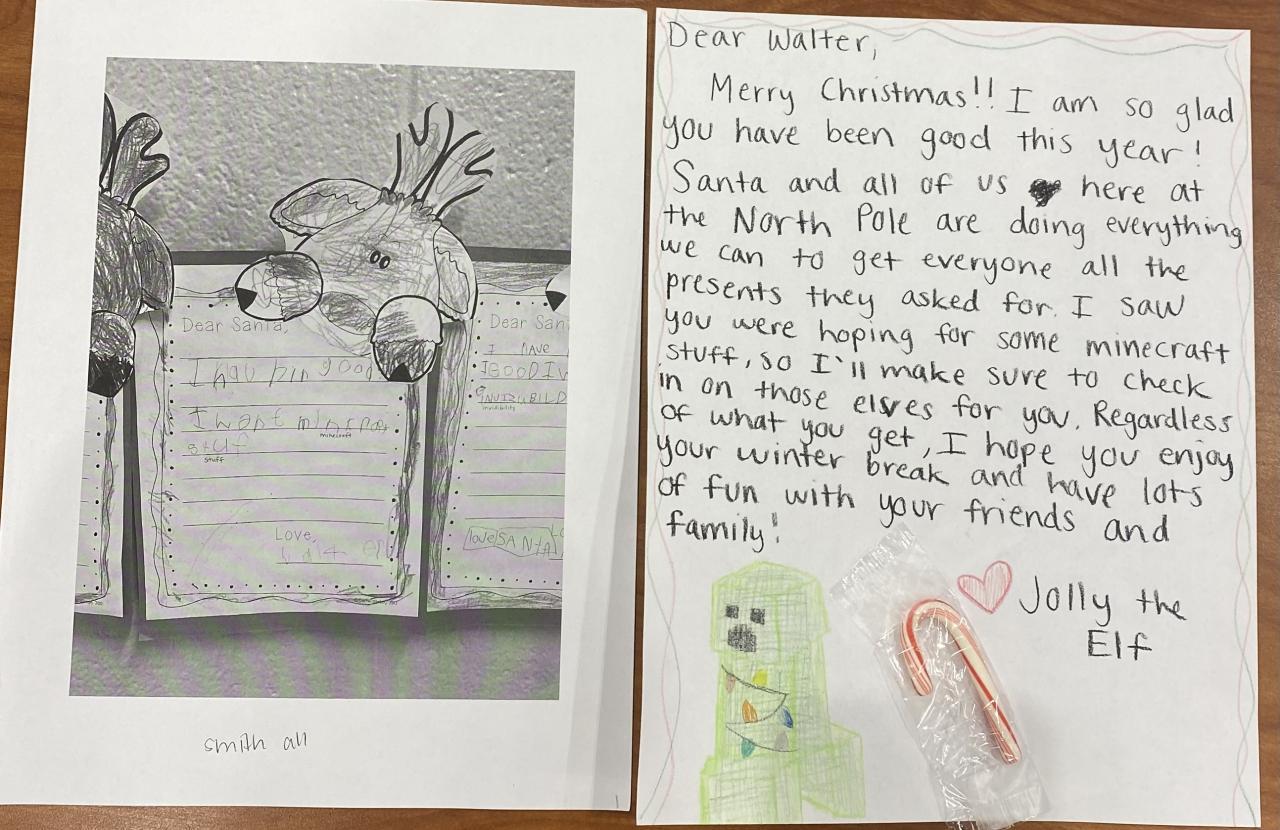 Dear Santa,
I hav bin good
I wont mincraf
minecraft
stuf
stuff
Love,
Dear San
I HAVE
IBOODIV
invisibility
love SANTA
smith all
Dear Walter,
Merry Christmas!! I am so glad
you have been good this year!
Santa and all of us here at
the North Pole are doing everything
we can to get everyone all the
presents they asked for. I saw
you were hoping for some minecraft
stuff, so I'll make sure to check
in on those elves for you. Regardless
of what you get, I hope you enjoy
your winter break and have lots
of fun with your friends and
family!
Jolly the
Elf